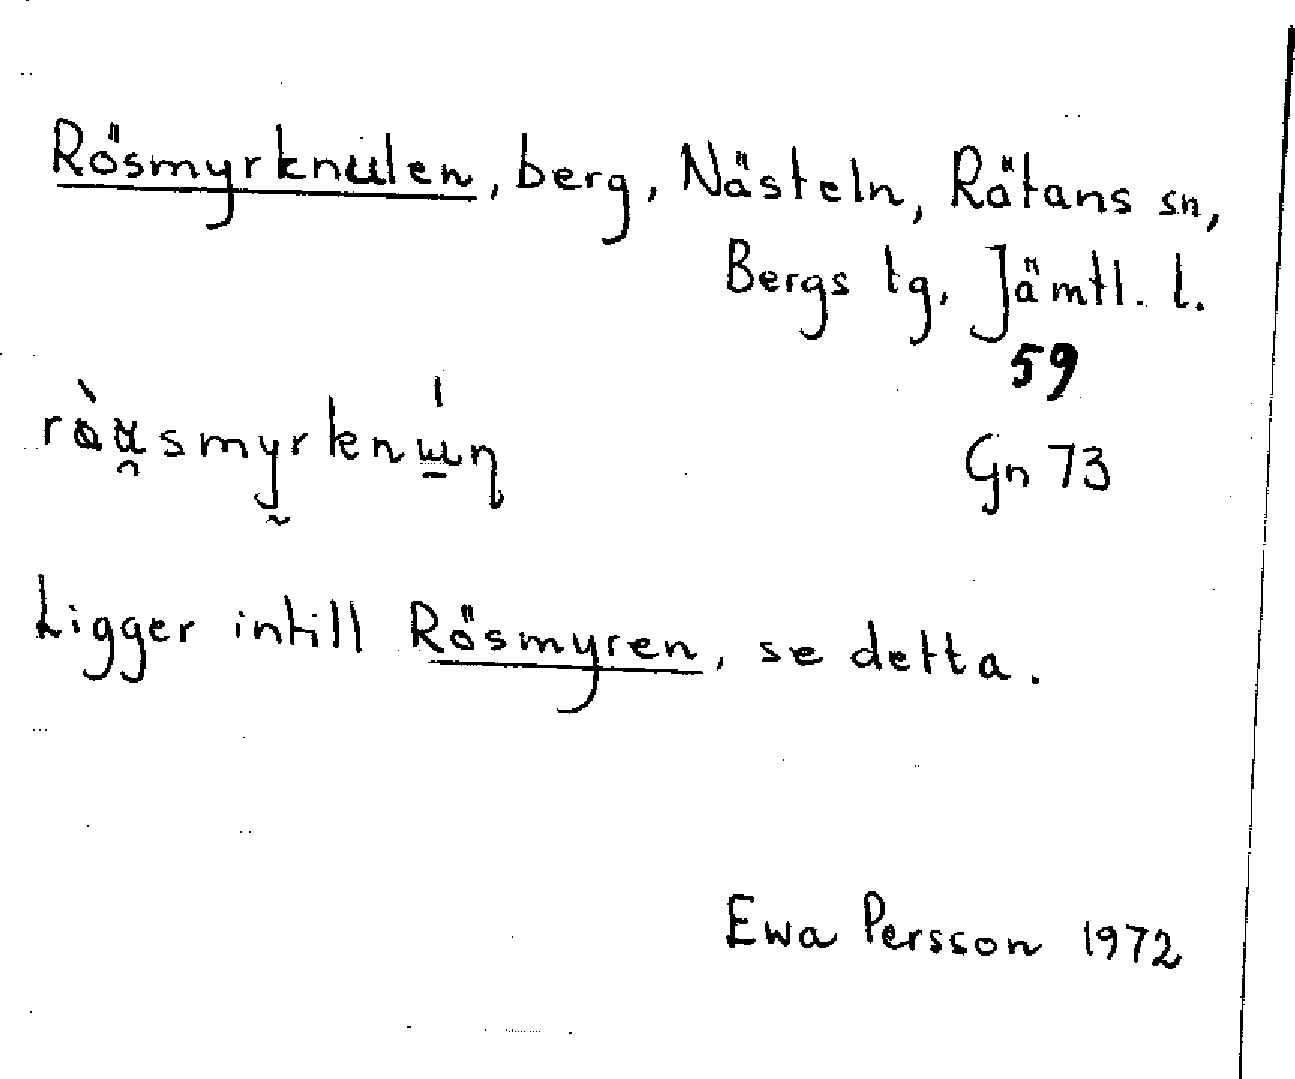 Rösmyrknulen, berg, Nästeln, Rätans sn,
Bergs tg, Jämtl. l.
59
Gn 73
Ligger intill Rösmyren, se detta.
Ewa Persson 1972